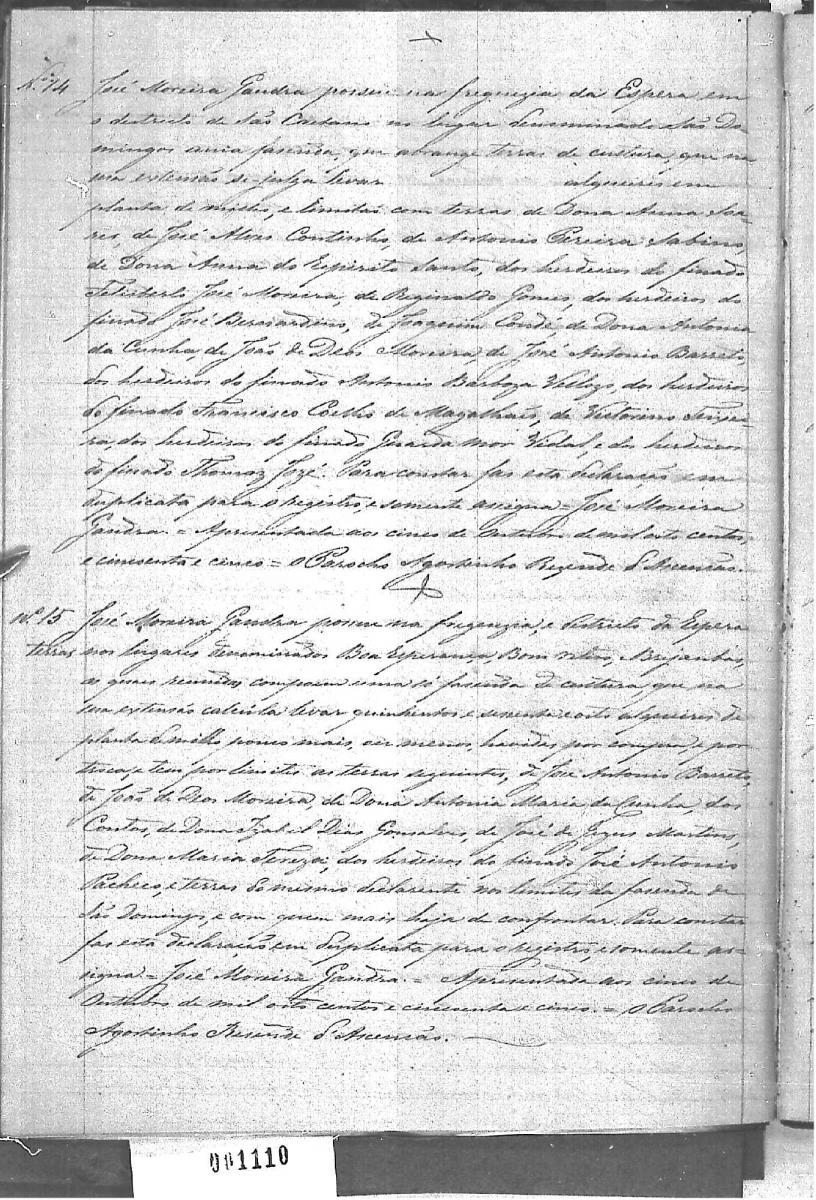 N.º 14 José Moreira Gandra possue na freguezia da Espera em
o destricto de São Caetano no lugar denominado São Do-
mingos uma fasenda, que abrange terras de cultura, que na
sua extensão se julga levar alqueires em
planta de milho, e limitão com terras de Dona Anna Soa-
res, de José Alves Coutinho, de Antonio Pereira Sabino,
de Dona Anna do Espirito Santo, dos herdeiros do finado
Felisberto José Moreira, de Reginaldo Gomes, dos herdeiros do
finado José Bernardino, de Joaquim Condé, de Dona Antonia
da Cunha, de João de Deos Moreira, de José Antonio Barreto,
dos herdeiros do finado Antonio Barboza Vellozo, dos herdeiros
do finado Francisco Coelho de Magalhães, de Victorino Teixei-
ra, dos herdeiros do finado Guarda mor Vidal, e dos herdeiros
do finado Thomaz Jozé. Para constar fas esta declaração em
duplicata para o registro, e somente assigna = José Moreira
Gandra. = Apresentada aos cinco de Outubro de mil oito centos,
e cincoenta e cinco = O Parocho Agostinho Rezende d'Ascensão.
N.º 15 José Moreira Gandra possue na freguezia, e Destricto da Espera
terras nos lugares denominados Boa Esperança, Bom retiro, Brejaubas,
as quaes reunidas compoem uma só fasenda de cultura, que na
sua extensão calcula levar quinhentos e sessenta e oito alqueires de
planta de milho pouco mais, ou menos, havidas por compra, e por
troca, e tem por limites as terras seguintes, de José Antonio Barreto,
de João de Deos Moreira, de Dona Antonia Maria da Cunha, dos
Coutos, de Dona Izabel Dias Gonsalves, de José de Jezus Martins,
de Dona Maria Tereza, dos herdeiros do finado José Antonio
Pacheco, e terras do mesmo declarente nos limites da fasenda de
São Domingos, e com quem mais haja de confrontar. Para constar
fas esta declaração em duplicata para o registro, e somente as-
signa = José Moreira Gandra. = Apresentada aos cinco de
Outubro de mil oito centos e cincoenta e cinco. = O Parocho
Agostinho Resende d'Ascensão.
001110